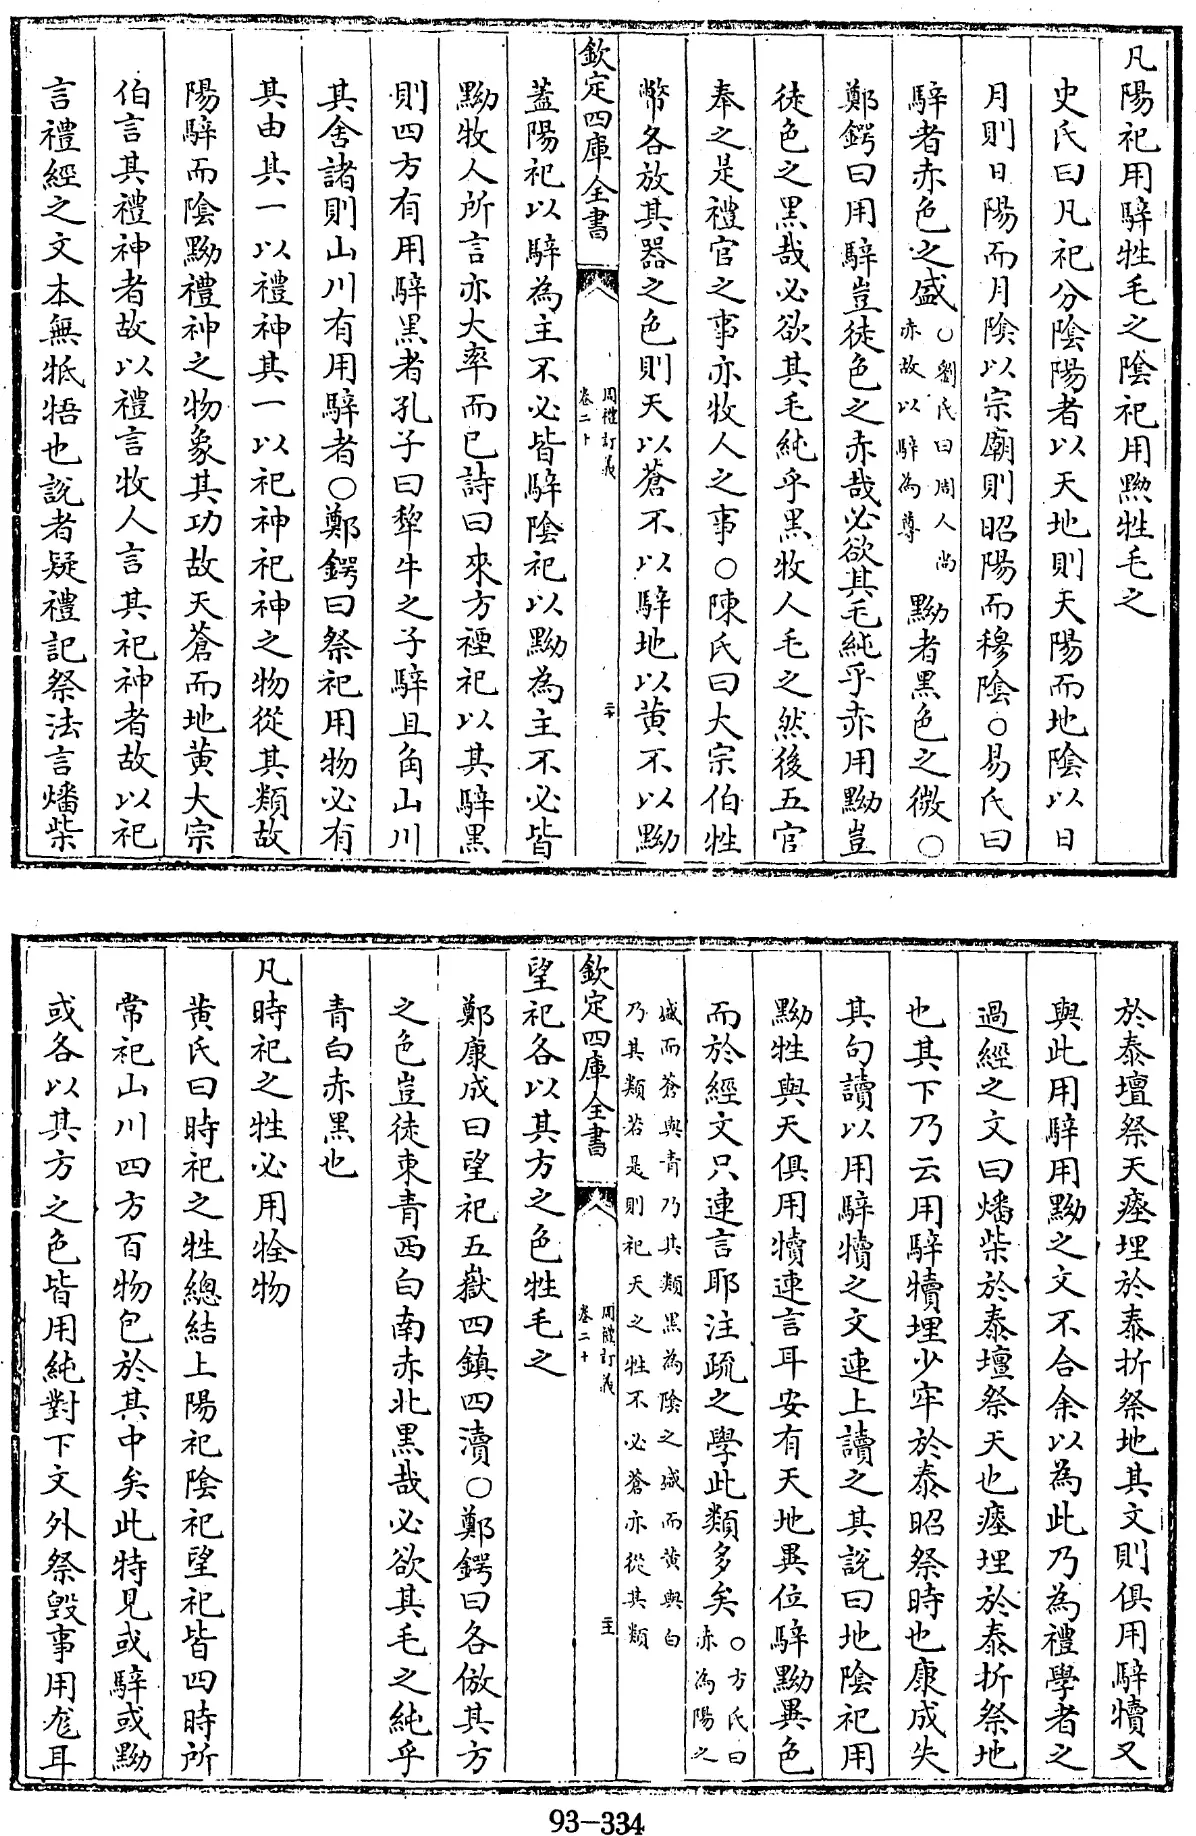 凡陽祀用騂牲毛之陰祀用黝牲毛之
史氏曰凡祀分陰陽者以天地則天陽而地陰以日
月則日陽而月陰以宗廟則昭陽而穆陰○易氏曰
騂者赤色之盛○劉氏曰周人尚赤故以騂為尊黝者黑色之微○
鄭鍔曰用騂豈徒色之赤哉必欲其毛純乎赤用黝豈
徒色之黑哉必欲其毛純乎黑牧人毛之然後五官
奉之是禮官之事亦牧人之事○陳氏曰大宗伯牲
幣各放其器之色則天以蒼不以騂地以黄不以黝
欽定四庫全書
周禮訂義
卷二十
二十
蓋陽祀以騂為主不必皆騂陰祀以黝為主不必皆
黝牧人所言亦大率而已詩曰來方禋祀以其騂黑
則四方有用騂黑者孔子曰犂牛之子騂且角山川
其舍諸則山川有用騂者○鄭鍔曰祭祀用物必有
其由其一以禮神其一以祀神祀神之物從其類故
陽騂而陰黝禮神之物象其功故天蒼而地黄大宗
伯言其禮神者故以禮言牧人言其祀神者故以祀
言禮經之文本無牴牾也說者疑禮記祭法言燔柴
於泰壇祭天瘞埋於泰折祭地其文則俱用騂犢又
與此用騂用黝之文不合余以為此乃為禮學者之
過經之文曰燔柴於泰壇祭天也瘞埋於泰折祭地
也其下乃云用騂犢埋少牢於泰昭祭時也康成失
其句讀以用騂犢之文連上讀之其説曰地陰祀用
黝牲與天俱用犢連言耳安有天地異位騂黝異色
而於經文只連言耶注疏之學此類多矣○方氏曰赤為陽之
盛而蒼與青乃其類黑為陰之盛而黄與白
乃其類若是則祀天之牲不必蒼亦從其類
欽定四庫全書
周禮訂義
卷二十
主
望祀各以其方之色牲毛之
鄭康成曰望祀五嶽四鎮四瀆○鄭鍔曰各倣其方
之色豈徒東青西白南赤北黑哉必欲其毛之純乎
青白赤黑也
凡時祀之牲必用牷物
黄氏曰時祀之牲總結上陽祀隂祀望祀皆四時所
常祀山川四方百物包於其中矣此特見或騂或黝
或各以其方之色皆用純對下文外祭毀事用尨耳
93-334